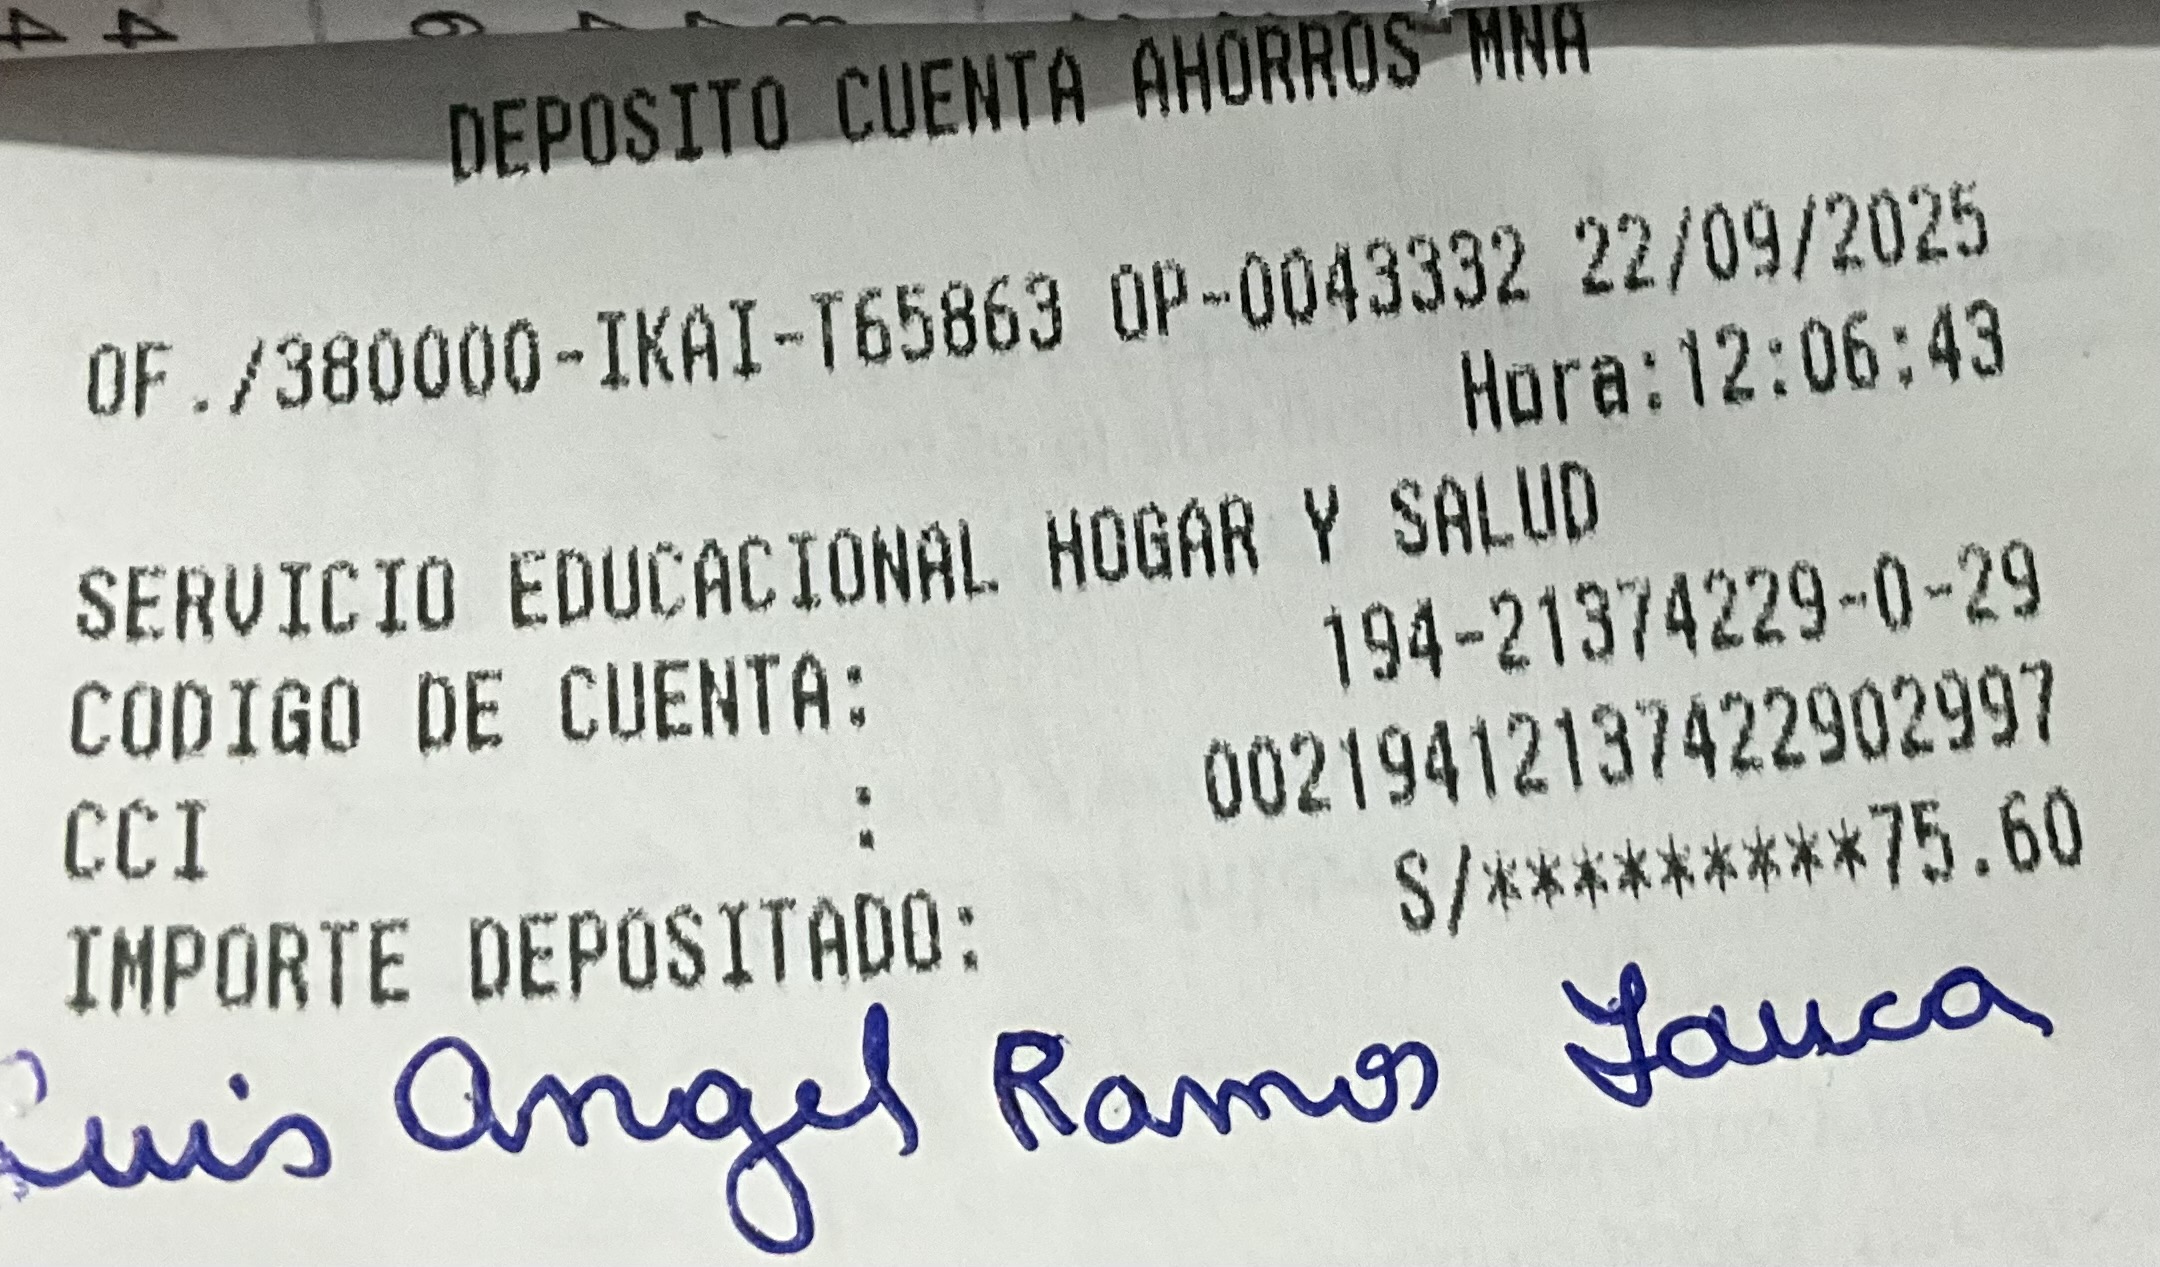 DEPOSITO CUENTA AHORROS MNA
OF./380000-IKAI-T65863 OP-0043332 22/09/2025
Hora:12:06:43
SERVICIO EDUCACIONAL HOGAR Y SALUD
CODIGO DE CUENTA: 194-21374229-0-29
CCI : 00219412137422902997
IMPORTE DEPOSITADO: S/*********75.60
Luis Angel Ramos Yauca